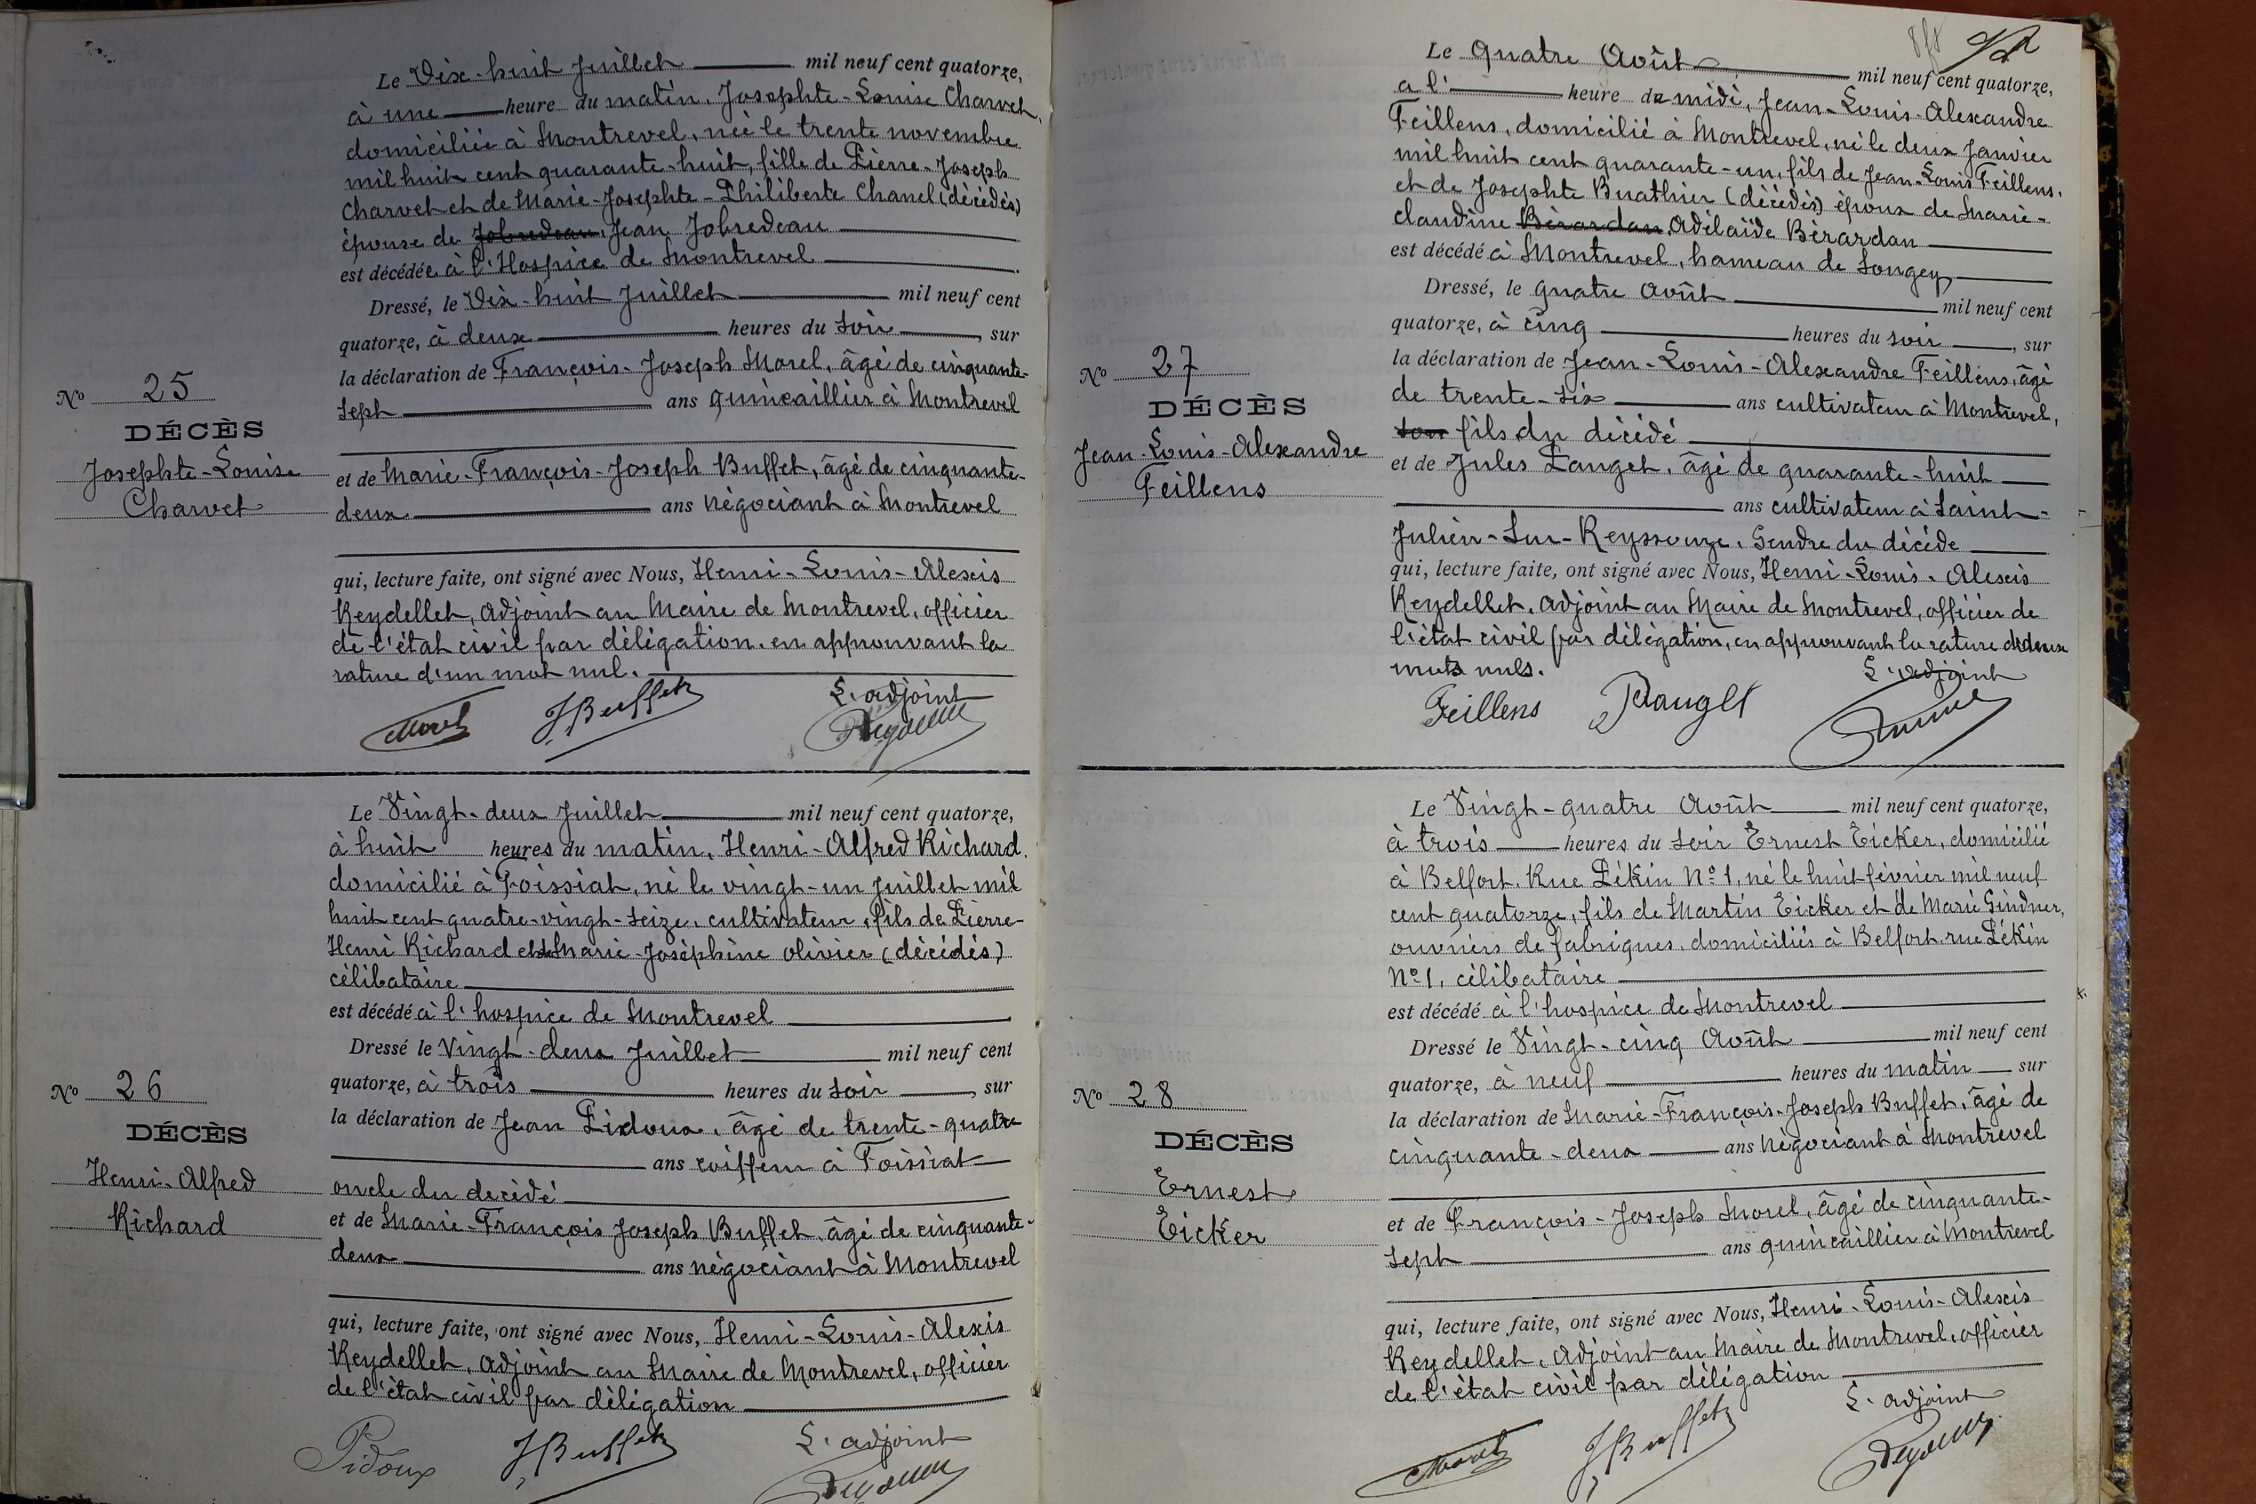 Le Dix-huit Juillet mil neuf cent quatorze,
à une heure du matin, Josephte-Louise Charvet,
domiciliée à Montrevel, née le trente novembre
mil huit cent quarante-huit, fille de Pierre-Joseph
Charvet et de Marie-Josephte-Philiberte Chanel (décédés)
épouse de Jobredeau, Jean Jobredeau
est décédée à l'Hospice de Montrevel
Dressé, le Dix-huit Juillet mil neuf cent
quatorze, à deux heures du soir, sur
la déclaration de François-Joseph Morel, âgé de cinquante-
sept ans quincaillier à Montrevel
No 25
DÉCÈS
Josephte-Louise
Charvet
et de Marie-François-Joseph Buffet, âgé de cinquante-
deux ans négociant à Montrevel
qui, lecture faite, ont signé avec Nous, Henri-Louis-Alexis
Reydellet, adjoint au Maire de Montrevel, officier
de l'état civil par délégation, en approuvant la
rature d'un mot nul.
L'adjoint
Morel JBuffet Reydellet
Le Vingt-deux Juillet mil neuf cent quatorze,
à huit heures du matin, Henri-Alfred Richard,
domicilié à Foissiat, né le vingt-un Juillet mil
huit cent quatre-vingt-seize, cultivateur, fils de Pierre-
Henri Richard et de Marie-Joséphine Olivier (décédés)
célibataire
est décédé à l'hospice de Montrevel
Dressé le Vingt-deux Juillet mil neuf cent
quatorze, à trois heures du soir, sur
la déclaration de Jean Pidoux, âgé de trente-quatre
ans coiffeur à Foissiat
oncle du décédé
No 26
DÉCÈS
Henri-Alfred
Richard
et de Marie-François Joseph Buffet, âgé de cinquante-
deux ans négociant à Montrevel
qui, lecture faite, ont signé avec Nous, Henri-Louis-Alexis
Reydellet, adjoint au Maire de Montrevel, officier
de l'état civil par délégation
L'adjoint
Pidoux JBuffet Reydellet
Le quatre Août mil neuf cent quatorze,
a l' heure de midi, Jean-Louis-Alexandre
Feillens, domicilié à Montrevel, né le deux Janvier
mil huit cent quarante-un, fils de Jean-Louis Feillens,
et de Josephte Buathier (décédés) époux de Marie-
Claudine Bérardan, Adélaïde Bérardan
est décédé à Montrevel, hameau de Songey
Dressé, le quatre Août mil neuf cent
quatorze, à cinq heures du soir, sur
la déclaration de Jean-Louis-Alexandre Feillens, âgé
de trente-six ans cultivateur à Montrevel,
son fils du décédé
No 27
DÉCÈS
Jean-Louis-Alexandre
Feillens
et de Jules Pauget, âgé de quarante-huit
ans cultivateur à Saint-
Julien-Sur-Reyssouze, Gendre du décédé
qui, lecture faite, ont signé avec Nous, Henri-Louis-Alexis
Reydellet, adjoint au Maire de Montrevel, officier de
l'état civil par délégation, en approuvant la rature de deux
mots nuls.
L'adjoint
Feillens Pauget
Le Vingt-quatre Août mil neuf cent quatorze,
à trois heures du soir Ernest Eicker, domicilié
à Belfort, Rue Pékin No 1, né le huit février mil neuf
cent quatorze, fils de Martin Eicker et de Marie Gindner,
ouvriers de fabriques, domiciliés à Belfort, rue Pékin
No 1, célibataire
est décédé à l'hospice de Montrevel
Dressé le Vingt-cinq Août mil neuf cent
quatorze, à neuf heures du matin sur
la déclaration de Marie-François-Joseph Buffet, âgé de
cinquante-deux ans négociant à Montrevel
No 28
DÉCÈS
Ernest
Eicker
et de François-Joseph Morel, âgé de cinquante-
sept ans quincaillier à Montrevel
qui, lecture faite, ont signé avec Nous, Henri-Louis-Alexis
Reydellet, adjoint au Maire de Montrevel, officier
de l'état civil par délégation
L'adjoint
Morel JBuffet Reydellet